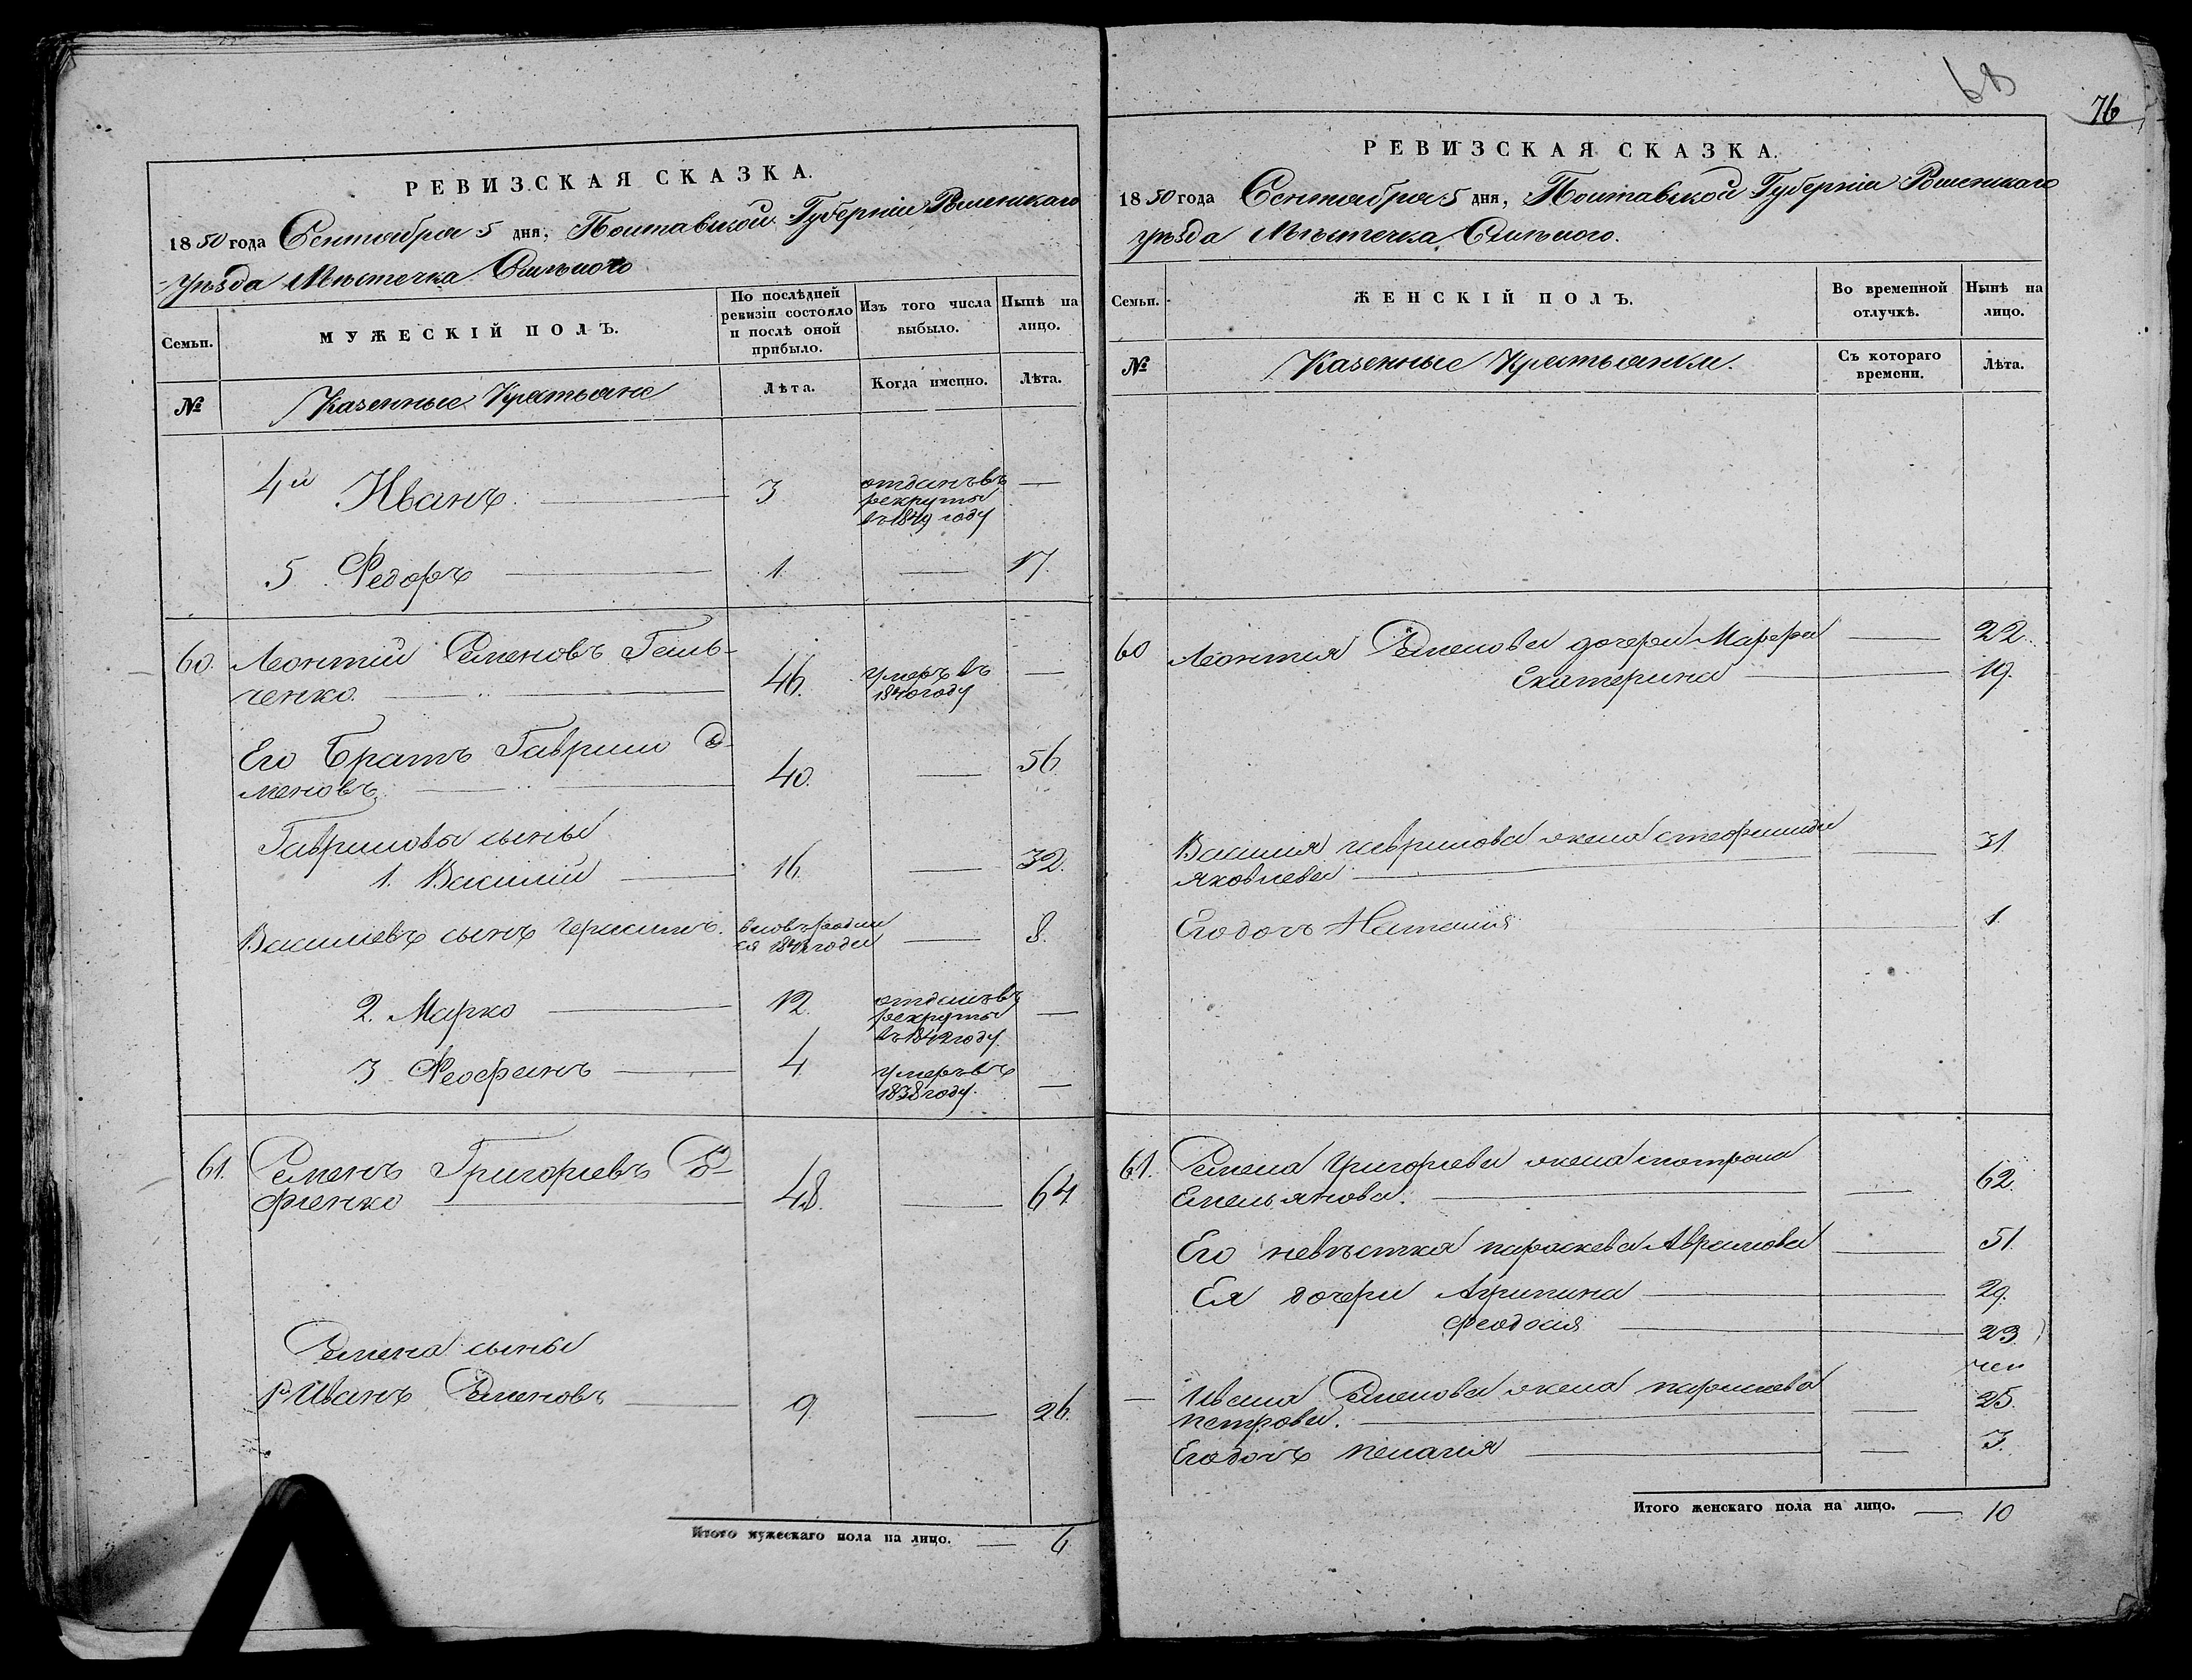 РЕВИЗСКАЯ СКАЗКА.
1850 года Сентября 5 дня, Полтавской Губерніи Роменскаго
уѣзда Мѣстечка Смѣлого
Семьи.
МУЖЕСКІЙ ПОЛЪ.
По послѣдней ревизіи состояло и послѣ оной прибыло.
Изъ того числа выбыло.
Нынѣ на лицо.
№
Казенные Крестьяне
Лѣта.
Когда именно.
Лѣта.
4й Иванъ 3 отданъ въ
рекруты
въ 1849 году
5 Федоръ 1 17.
60. Леонтій Семеновъ
ченко. 46. умеръ въ
1840 году
Его Братъ Гаврило Се-
меновъ 40. 56
Гавриловы сыны
1. Василій 16. 32.
Васильевъ сынъ Герасимъ. вновь родил
ся 1842 года 8.
2. Марко 12. отданъ въ
рекруты
въ 1842 году
3 Феофанъ 4 умеръ въ
1838 году.
61. Семенъ Григорьевъ
фіенко 48. 64
Семена сыны
1й Иванъ Семеновъ 9 26.
Итого мужескаго пола на лицо. 6
68
76
РЕВИЗСКАЯ СКАЗКА.
1850 года Сентября 5 дня, Полтавской Губерніи Роменскаго
уѣзда Мѣстечка Смѣлого.
Семьи.
ЖЕНСКІЙ ПОЛЪ.
Во временной отлучкѣ.
Нынѣ на лицо.
№
Казенные Крестьянки.
Съ котораго времени.
Лѣта.
60 Леонтия Семенова дочери Марфа 22.
Екатерина 19.
Василия гаврилова жена стефанида 31
яковлева
Его дочь Наталия 1.
61. Семена Григорьева жена матрона
Емельянова. 62.
Его невѣстка параскева Аврамова 51.
Ея дочери Агрипина 29.
феодосия 23
Ивана Семенова жена параскева
петрова. 25.
Его дочь пелагия 3.
Итого женскаго пола на лицо. 10